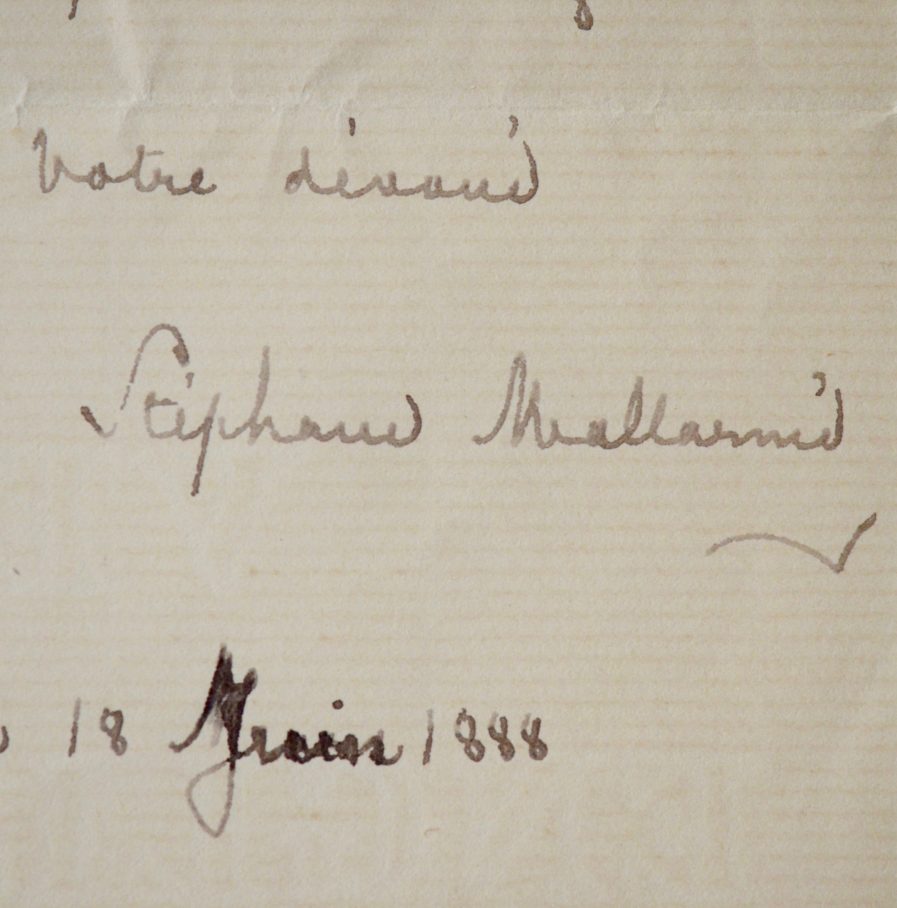 votre dévoué
Stéphane Mallarmé
18 Juin 1888